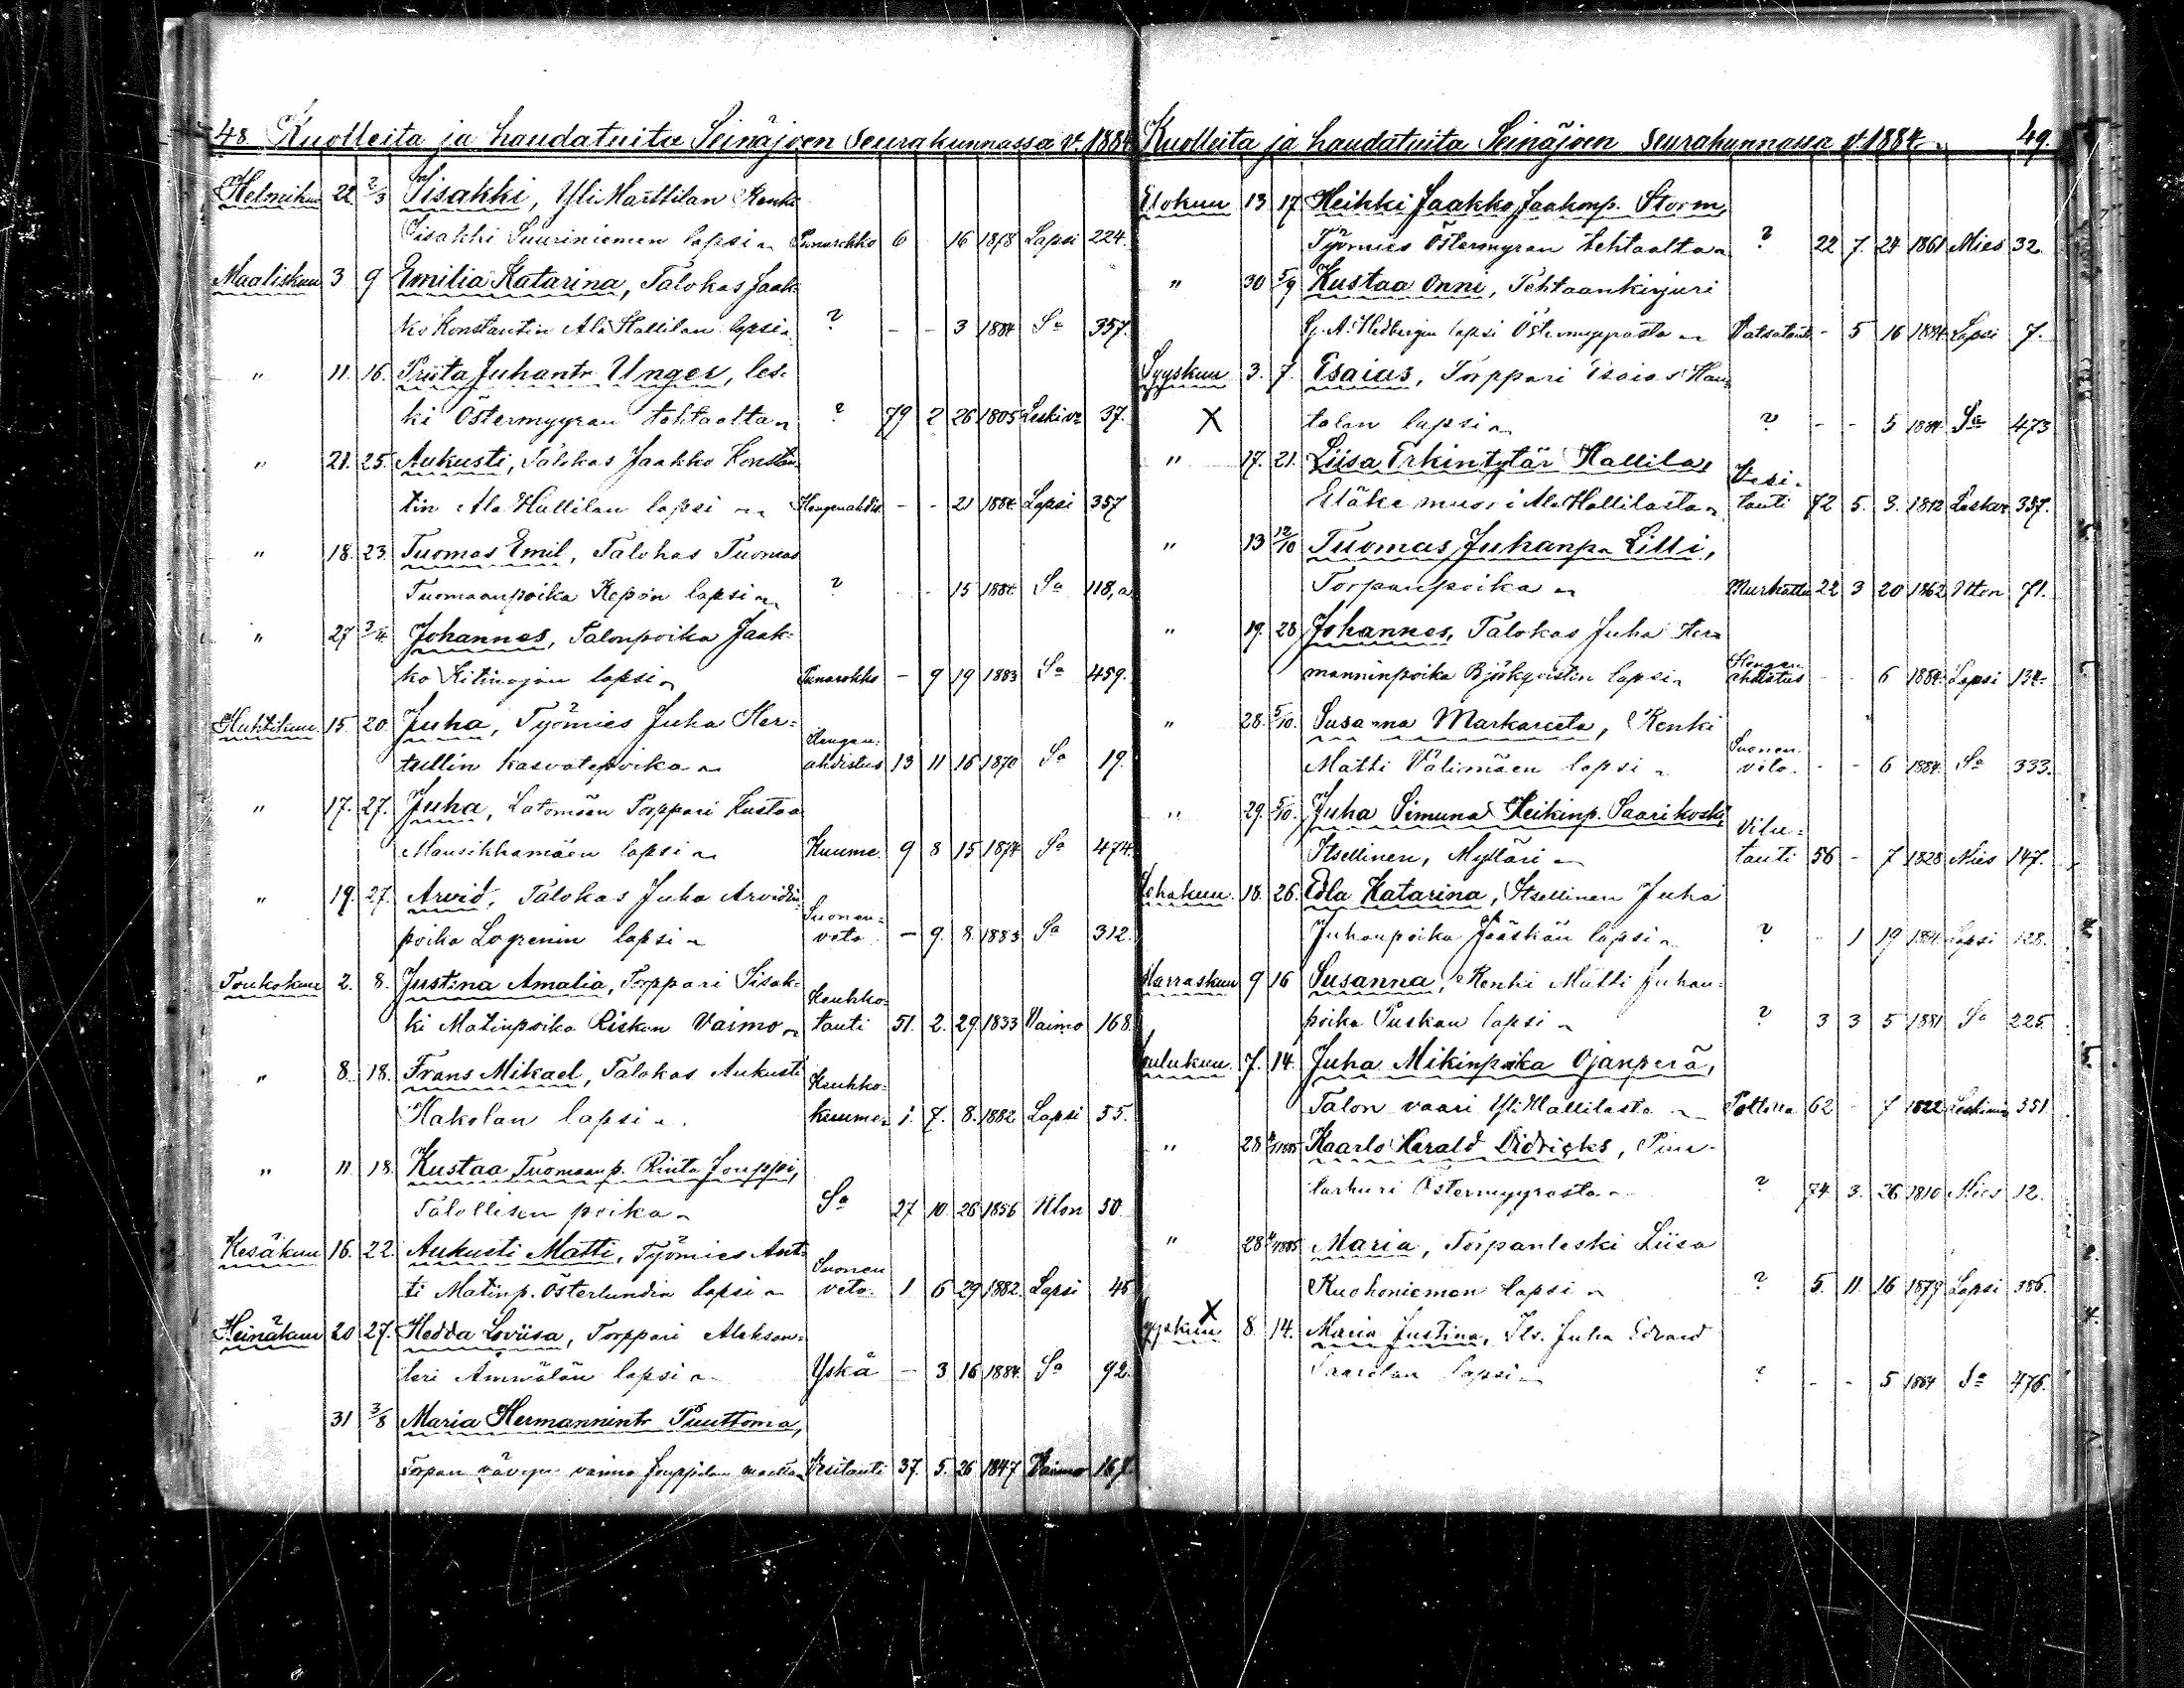 48 Kuolleita ja haudatuita Seinäjoen Seurakunnassa v. 1884
Helmikuu 22 2/3 Iisakki, YliMarttilan Renki
Iisakki Suuriniemen lapsi Punarokko 6 16 1878 Lapsi 224.
Maaliskuu 3 9 Emilia Katarina, Talokas Jaak-
ko Konstantin Ala Hallilan lapsi ? - - 3 1884 Sa 357.
" 11. 16. Priita Juhantr Unger, les-
ki Östermyyran tehtaalta ? 79 2 26 1805 Leskiv. 37.
" 21. 25. Aukusti, Talokas Jaakko Konstan-
tin Ala Hallilan lapsi Hengenahdis - - 21 1884 Lapsi 357
" 18. 23. Tuomas Emil, Talokas Tuomas
Tuomaanpoika Kepon lapsi ? - - 15 1884 Sa 118,a
" 27 3/4 Johannes, Talonpoika Jaak-
ko Kitinojan lapsi Punarokko - 9 19 1883 Sa 459.
Huhtikuu 15. 20. Juha, Työmies Juha Her-
tullin kasvatepoika Hengen-
ahdistus 13 11 16 1870 Sa 19.
" 17. 27. Juha, Latomäen Torppari Kustaa
Mansikkamäen lapsi Kuume. 9 8 15 1874 Sa 474.
" 19. 27. Arvid, Talokas Juha Arvidin-
poika Logrenin lapsi Suonen-
veto - 9. 8. 1883 Sa 312.
Toukokuu 2. 8. Justina Amalia, Torppari Iisak-
ki Matinpoika Riskun Vaimo Keuhko-
tauti 51. 2. 29. 1833 Vaimo 168.
" 8. 18. Frans Mikael, Talokas Aukusti
Hakolan lapsi Keuhko-
kuume 1. 7. 8. 1882 Lapsi 55.
" 11 18. Kustaa Tuomaanp. Rinta Jouppi,
Talollisen poika Sa 27 10 26 1856 Nton 50.
Kesäkuu 16. 22. Aukusti Matti, Työmies Ant-
ti Matinp. Österlundin lapsi Suonen
veto. 1 6 29 1882. Lapsi 45
Heinäkuu 20 27. Hedda Loviisa, Torppari Aleksan-
teri Ämmälän lapsi Yskä - 3 16 1884. Sa 92.
31 3/8 Maria Hermannintr Puuttoma,
Torpan vävyn vaimo Jouppilan maalta Vesitauti 37. 5. 26 1847 Vaimo 167.
Kuolleita ja haudatuita Seinäjoen Seurakunnassa v. 1884 49.
Elokuu 13 17 Heikki Jaakko Jaakonp. Storm,
Työmies Östermyran tehtaalta ? 22 7. 24 1861 Mies 32.
" 30 5/9 Kustaa Onni, Tehtaankirjuri
G. A. Hedbergin lapsi Östermyyrästä Vatsatauti - 5 16 1884 Lapsi 7.
Syyskuu 3. 7. Esaias, Torppari Esaias Hau-
X talan lapsi ? - - 5 1884 Sa 473
" 17. 21. Liisa Erkintytär Hallila,
Eläkemuori Ala Hallilasta Vesi-
tauti 72 5. 3. 1812 Leskiv. 357.
" 13 12/10 Tuomas Juhanp. Lilli,
Torpanpoika Murhattu 22 3 20 1862 Nton 71.
" 19. 28 Johannes, Talokas Juha Her-
manninpoika Björkqvistin lapsi Hengen-
ahdistus - - 6 1884 Lapsi 134.
" 28. 5/10. Susanna Markareeta, Renki
Matti Välimäen lapsi Suonen-
veto. - - 6 1884. Sa 333.
" 29. 5/10. Juha Simuna Heikinp. Saarikoski,
Itsellinen, Mylläri Vilu-
tauti 56 - 7 1828 Mies 147.
Lokakuu. 18. 26. Edla Katarina, Itsellinen Juha
Juhanpoika Jääskän lapsi ? - 1 19 1884 Lapsi 128.
Marraskuu 9 16 Susanna, Renki Matti Juhan-
poika Puskan lapsi ? 3 3 5 1881 Sa 225.
Joulukuu. 7. 14. Juha Mikinpoika Ojanperä,
Talon vaari Yli Hallilasta Polttoa 62 - 7 1822 Leskimies 351.
" 28 /1885 Kaarlo Harald Didrichs, Puu-
tarhuri Östermyyrasta ? 74. 3. 26 1810 Mies 12.
" 28 /1885 Maria, Torpanleski Liisa
Ruohoniemen lapsi ? 5. 11. 16 1879 Lapsi 386.
X
Syyskuu 8. 14. Maria Justina, Its. Juha Edvard
Saarilan lapsi ? - - 5 1884 Sa 476.